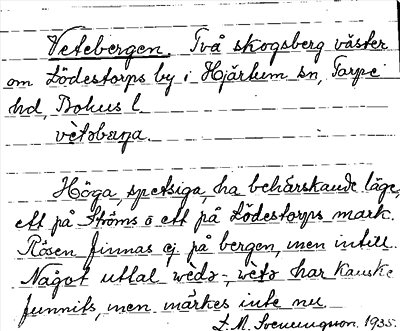 Vetebergen. Två skogsberg väster
om Lödestorps by i Hjärtum sn, Torpe
hd, Bohus l.
vètəbærja.
Höga, spetsiga, ha behärskande läge,
ett på Ströms o ett på Lödestorps mark.
Rösen finnas ej på bergen, men intill.
Något uttal wèdə-, vètə har kanske
funnits, men märkes inte nu.
1935.